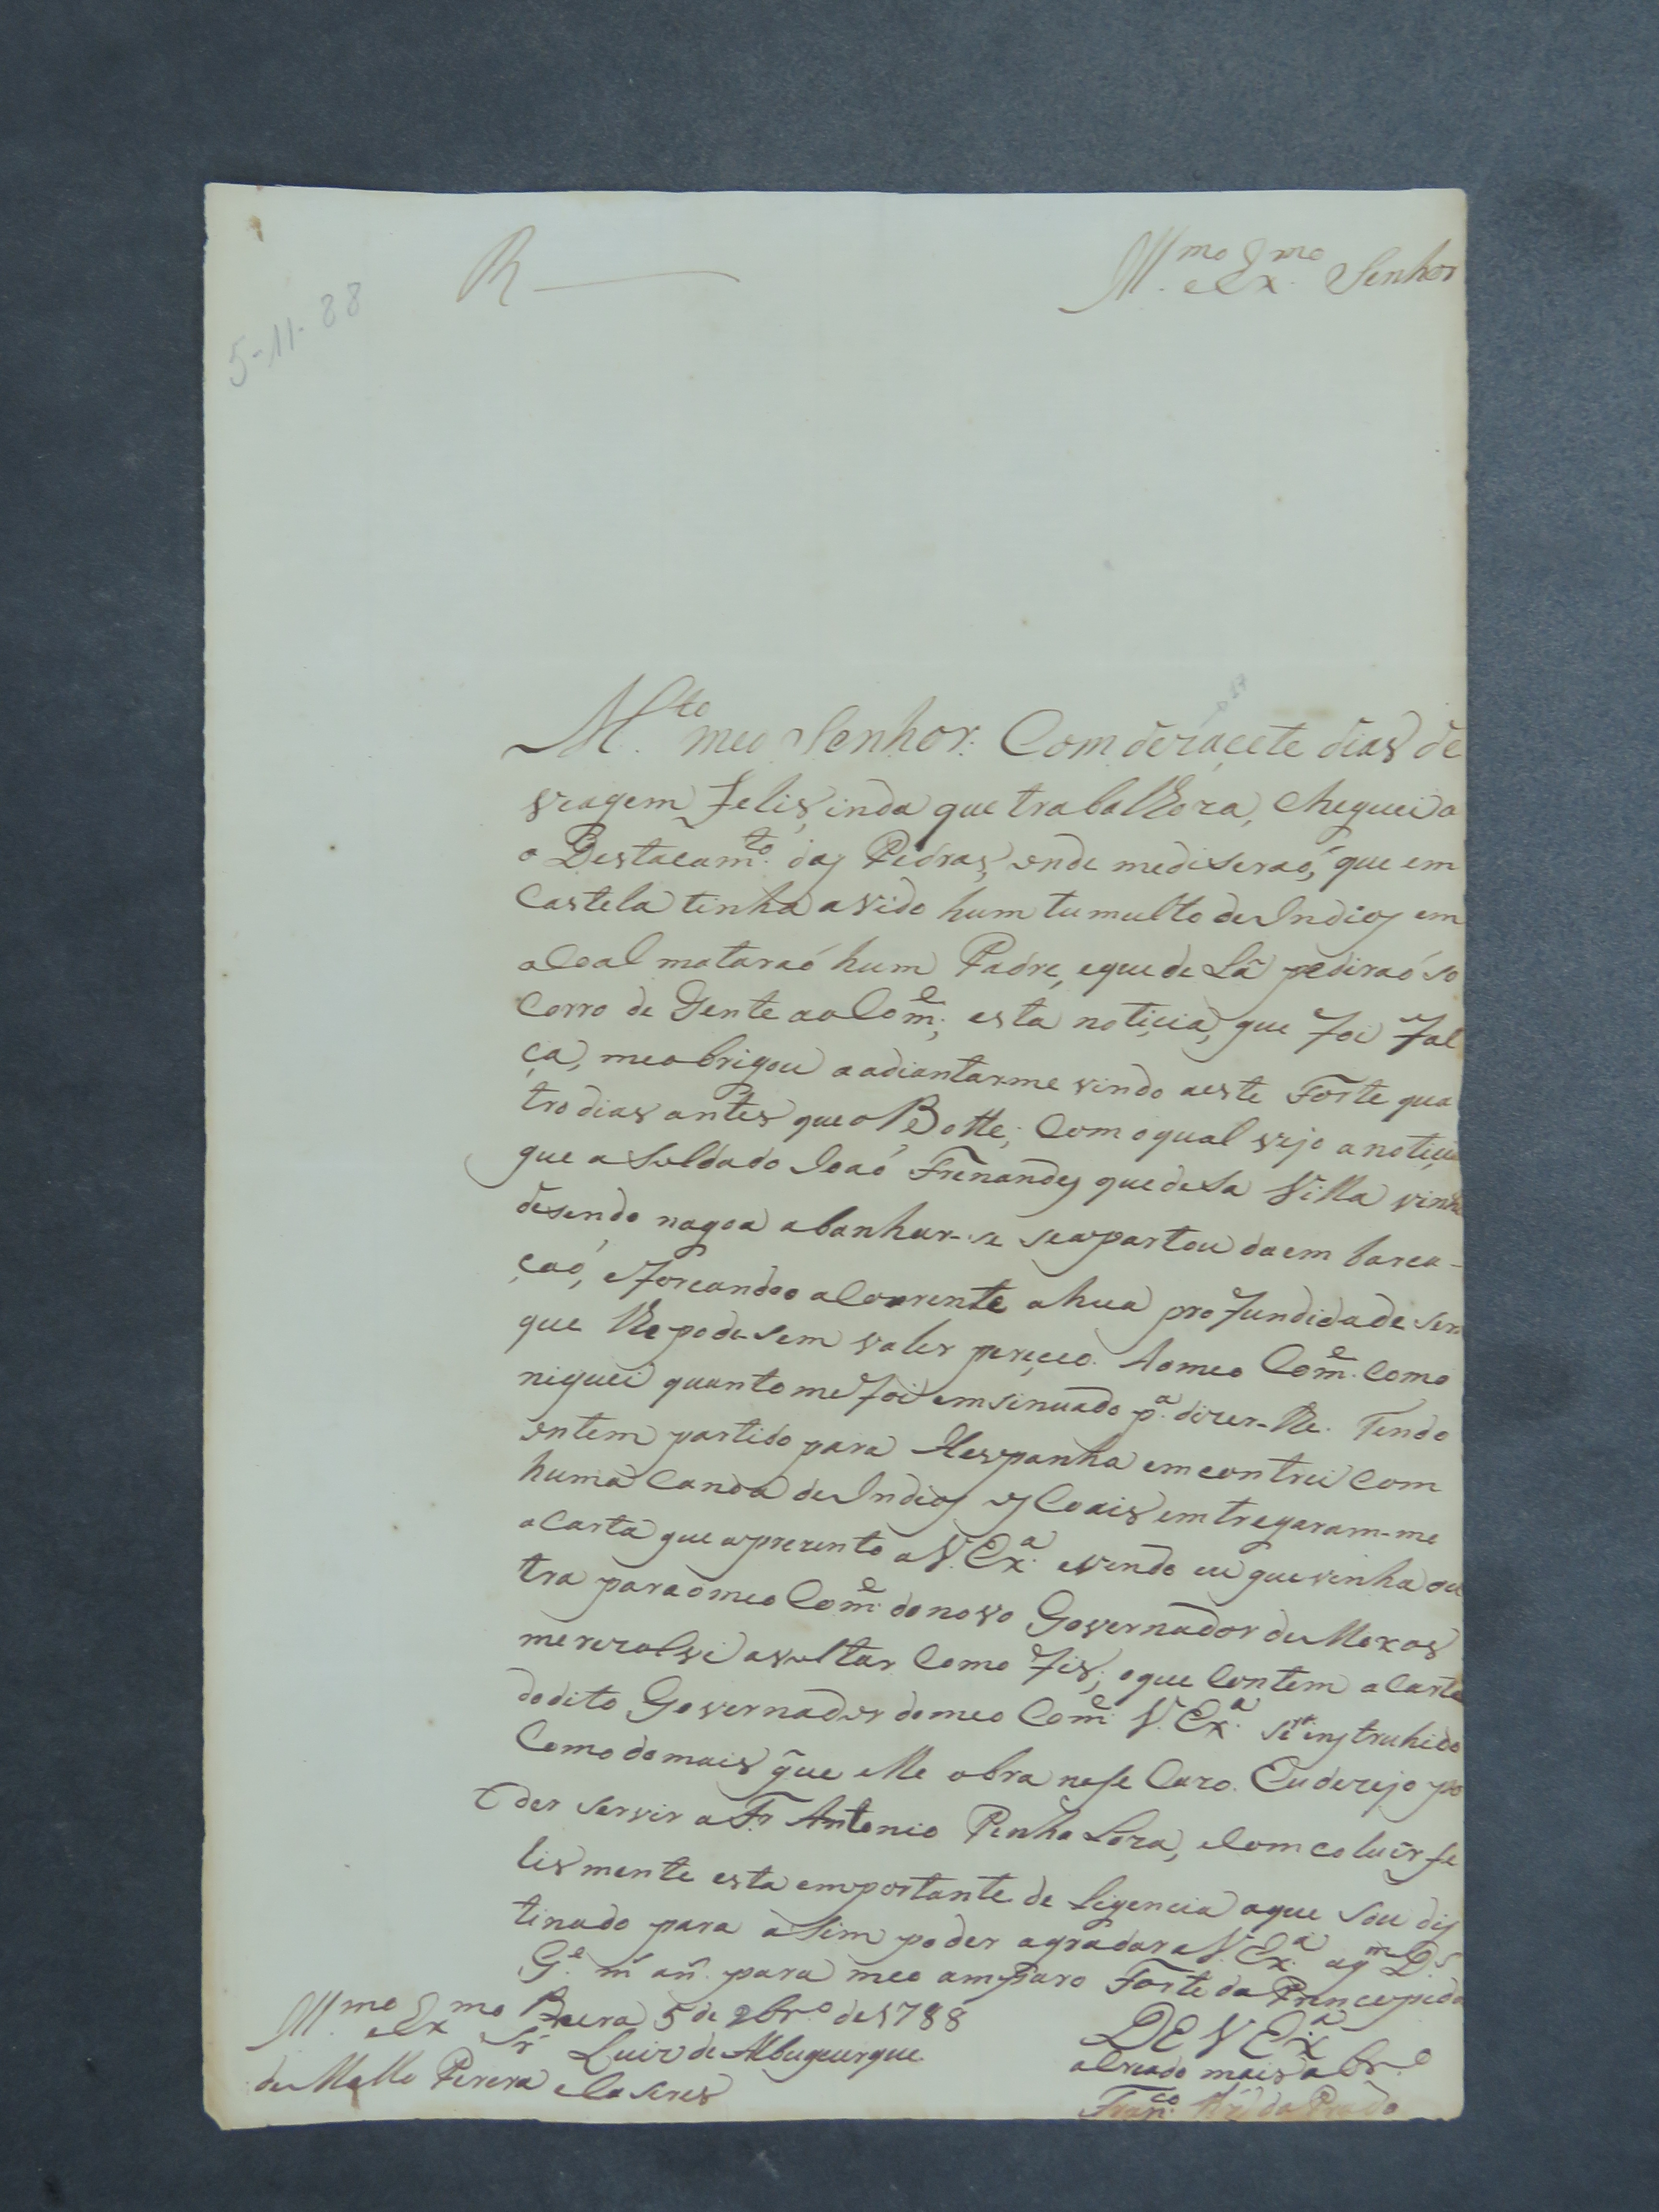 5-11-88
R
Ill.mo e Ex.mo Senhor
M.to meo Senhor. Com dezácete dias de
viagem felis, inda que trabalhoza, cheguei a
o Destacam.to das Pedras, onde mediseraó, que em
Castela tinha avido hum tumulto de Indios em
a coal mataraó hum Padre, eque de Lâ pediraó so
corro de Gente ao Com.e; esta noticia, que foi fal
ça, me obrigou a adiantarme vindo aeste Forte qua
tro dias antes que o Botte; Com oqual vejo a noticia
que a Soldado Joaó Frenandes que desa Villa vinha
desendo nagoa abanhar-se seapartou da em barca-
çaó, eforcandoo a Corrente ahua profundidade sem
que lhe podesem valer pereceo. Aomeo Com.e Como
niquei quanto me foi emsinuado p.a dizer-lhe. Tendo
ontem partido para Hespanha emcontrei Com
huma Canoa de Indios os Coais emtregaram-me
a Carta que aprezento a V. Ex.a evendo eu que vinha ou
tra para o meo Com.e do novo Governador de Moxos
merezolvi avoltar Como fis; oque Contem a Carta
dodito Governador domeo Com.e V. Ex.a será instruhido
Como domais que elle obra nese Cazo. Eu dezejo po
der servir a Fr. Antonio Penha Loza, e Com coluir fe
lismente esta emportante de ligencia aque sou dis
tinado para asim poder agradar a V. Ex.a aq.m D.s
G.e m.s an.s para meo amparo Forte do Princepe da
Beira 5 de 9br.o de 1788
Ill.mo e Ex.mo Sr. Luiz de Albuquerque
de Mello Perera e Caseres
DE V EX.a
a Creado mais abr.o
Fran.co Roiz do Prado